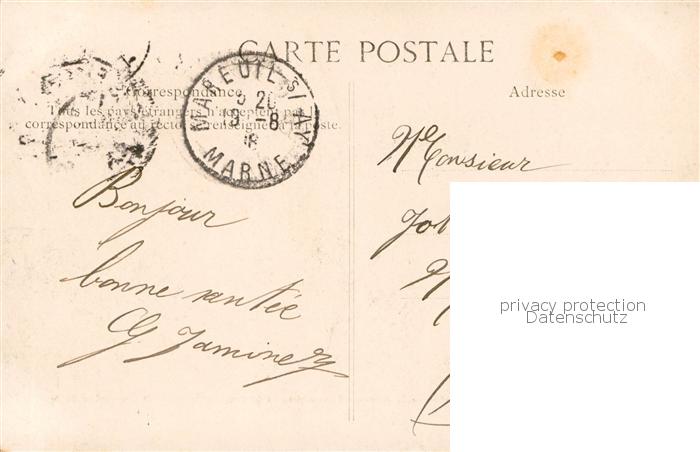 CARTE POSTALE
Correspondance
Tous les pays étrangers n'acceptent pas
correspondance au recto, renseigner à la poste.
Adresse
MAREUIL S/ AY
9 - 8
MARNE
Bonjour
bonne santée
Monsieur
privacy protection
Datenschutz